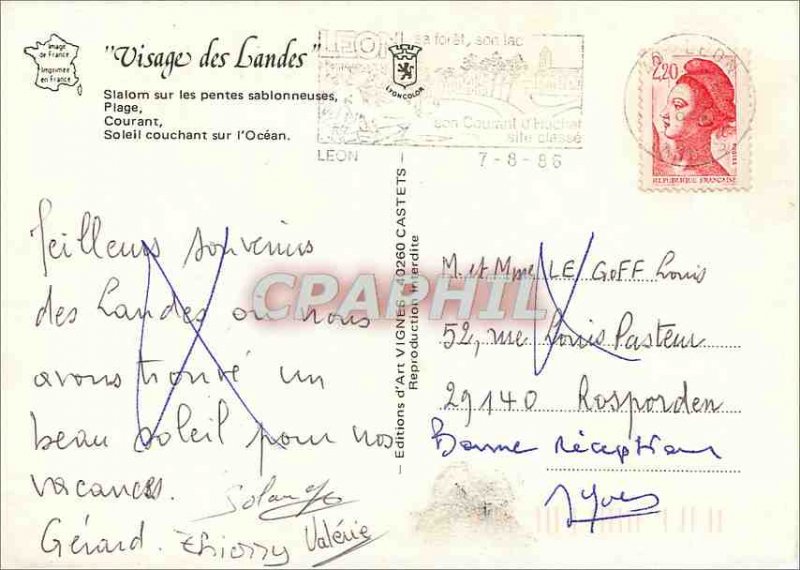 Image
de France
Imprimée
en France
"Visage des Landes"
Slalom sur les pentes sablonneuses,
Plage,
Courant,
Soleil couchant sur l'Océan.
LYONCOLOR
LEON
sa forêt, son lac
son Courant d'Huchet
site classé
LEON
7-8-86
2,20
POSTES
REPUBLIQUE FRANÇAISE
Meilleurs souvenirs
des Landes où nous
avons trouvé un
beau soleil pour nos
vacances.
Solange
Gérard. Thierry Valérie
Editions d'Art VIGNES - 40260 CASTETS
Reproduction Interdite
CPAPHIL
M. et Mme LE GOFF Louis
52, rue Louis Pasteur
29140 Rosporden
Bonne réception
Yves